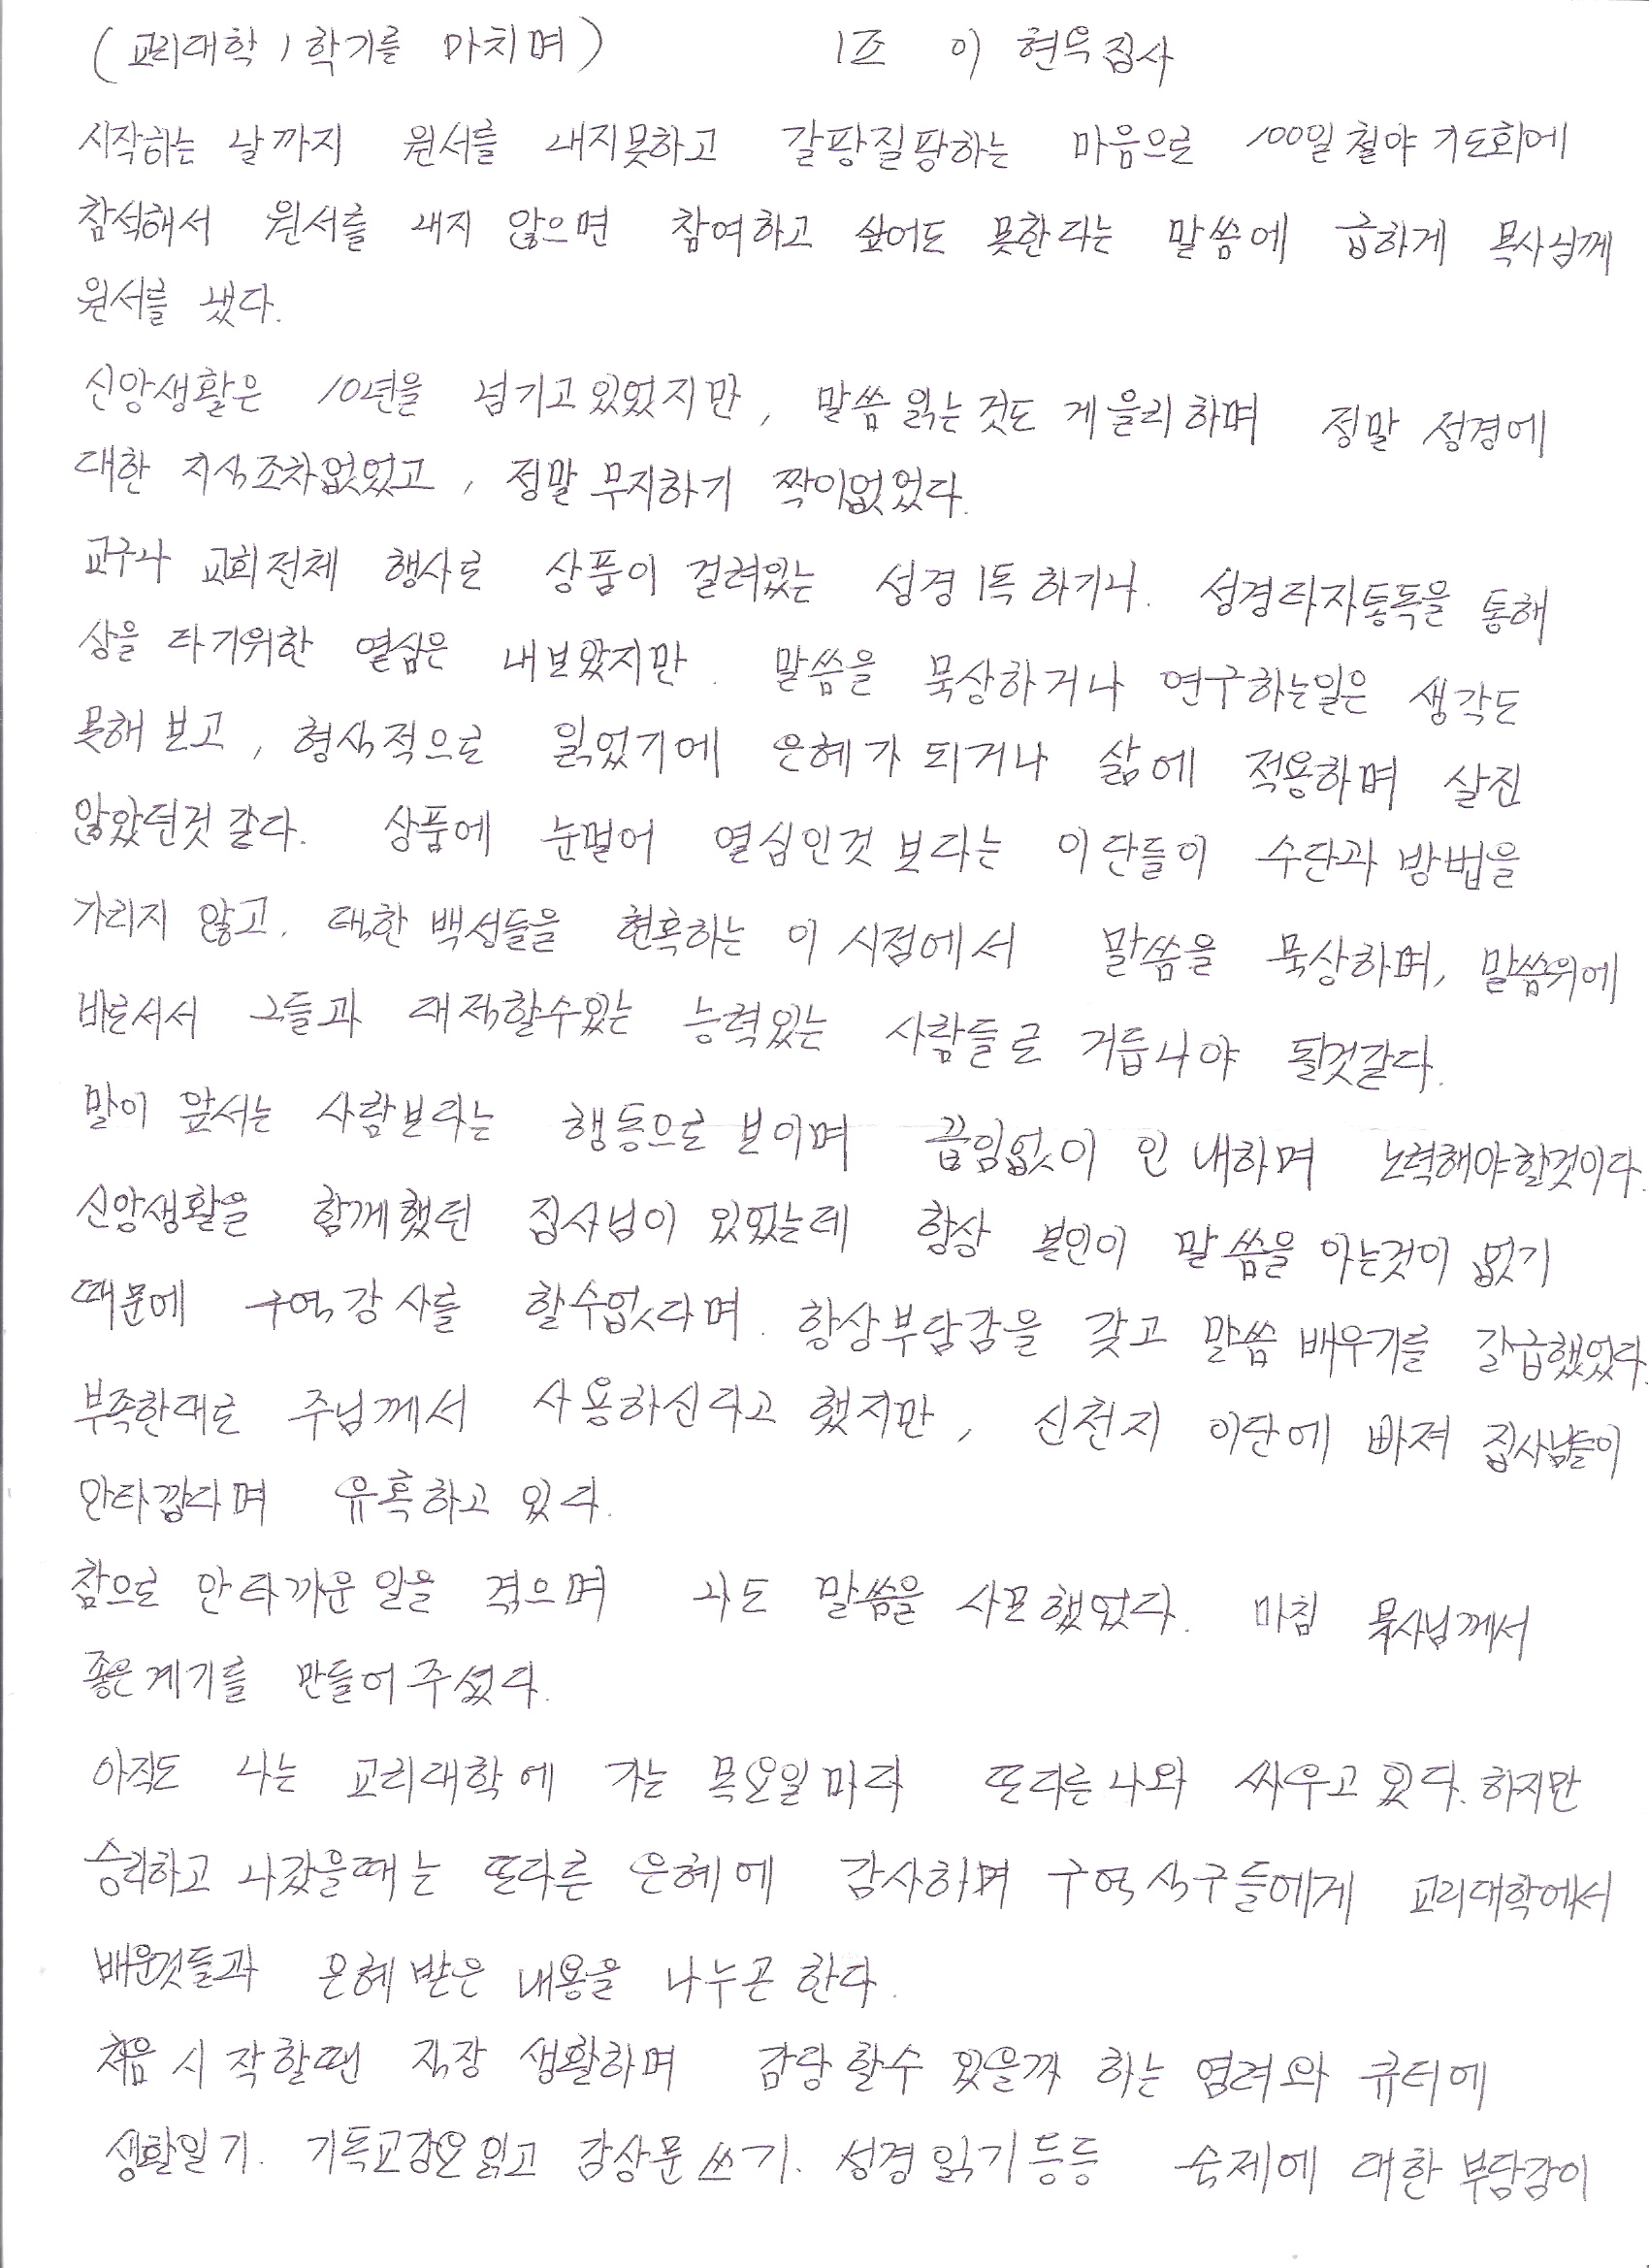 (교리대학 1학기를 마치며) 1조 이현옥집사
시작하는 날까지 원서를 내지못하고 갈팡질팡하는 마음으로 100일철야기도회에
참석해서 원서를 내지 않으면 참여하고 싶어도 못한다는 말씀에 급하게 목사님께
원서를 냈다.
신앙생활은 10년을 넘기고있었지만, 말씀읽는것도 게을리하며 정말 성경에
대한 지식조차없었고, 정말 무지하기 짝이없었다.
교구나 교회전체 행사로 상품이 걸려있는 성경1독하거나. 성경타자통독을 통해
상을 타기위한 열심은 내보았지만. 말씀을 묵상하거나 연구하는일은 생각도
못해보고, 형식적으로 읽었기에 은혜가 되거나 삶에 적용하며 살진
않았던것 같다. 상품에 눈멀어 열심인것 보다는 이단들이 수단과 방법을
가리지 않고. 택한백성들을 현혹하는 이 시점에서 말씀을 묵상하며, 말씀위에
바로서서 그들과 대적할수있는 능력있는 사람들로 거듭나야 될것같다.
말이 앞서는 사람보다는 행동으로 보이며 끊임없이 인내하며 노력해야할것이다.
신앙생활을 함께했던 집사님이 있었는데 항상 본인이 말씀을 아는것이 없기
때문에 구역강사를 할수없다며. 항상부담감을 갖고 말씀 배우기를 갈급했었다.
부족한대로 주님께서 사용하신다고 했지만, 신천지 이단에 빠져 집사님들이
안타깝다며 유혹하고 있다.
참으로 안타까운일을 겪으며 나도 말씀을 사모했었다. 마침 목사님께서
좋은계기를 만들어주셨다.
아직도 나는 교리대학에 가는 목요일마다 또다른나와 싸우고있다. 하지만
승리하고 나갔을때는 또다른 은혜에 감사하며 구역식구들에게 교리대학에서
배운것들과 은혜받은 내용을 나누곤한다.
처음시작할땐 직장생활하며 감당할수 있을까 하는 염려와 큐티에
생활일기. 기독교강요읽고 감상문쓰기. 성경읽기등등 숙제에 대한부담감이